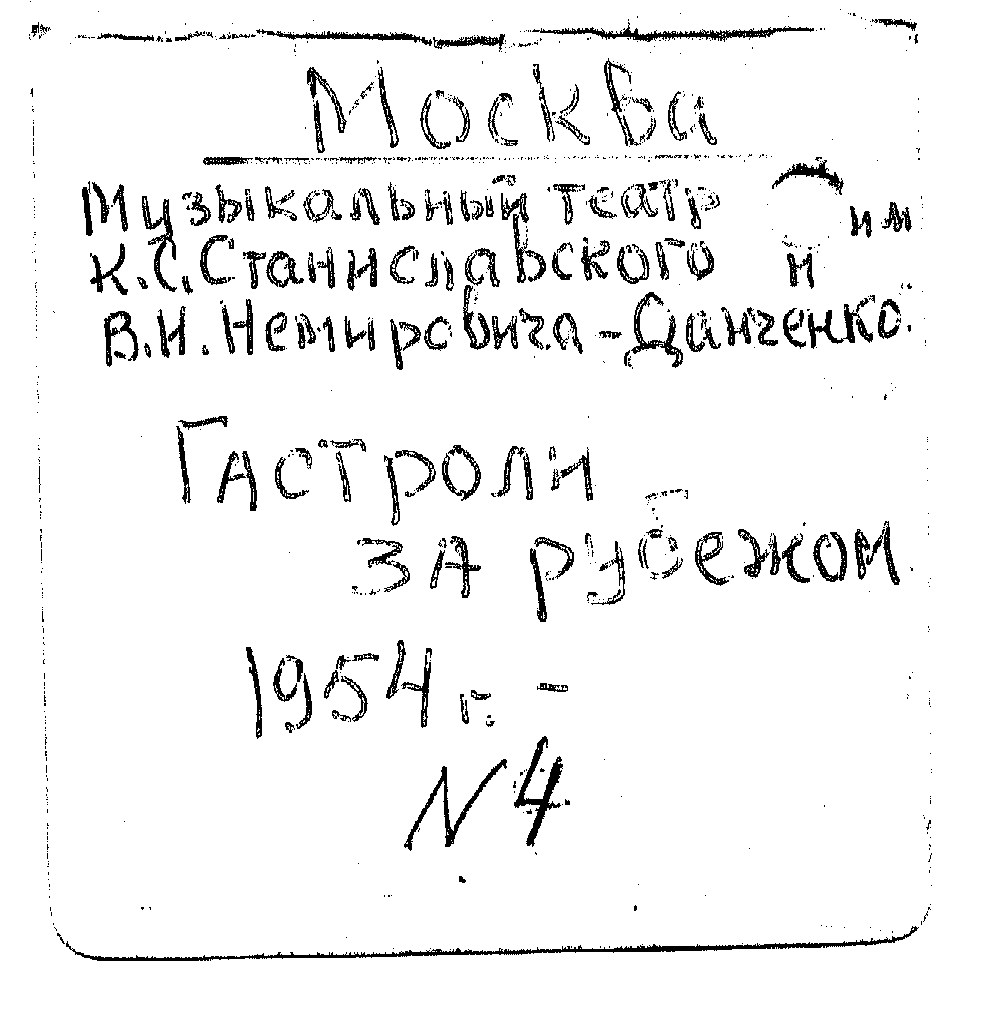 Москва
Музыкальный театр им
К.С. Станиславского и
В.И. Немировича-Данченко.
Гастроли
за рубежом
1954 г. -
N 4